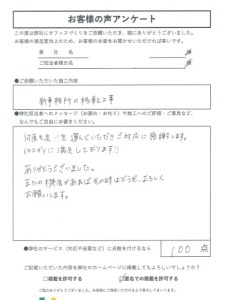 お客様の声アンケート
この度は弊社にオフィスづくりをご依頼いただき、誠にありがとうございました。
お客様の満足度向上のため、お客様の本音をお聞かせいただければ幸いです。
貴 社 名
様
ご担当者様氏名
様
●ご依頼いただいた施工内容
新事務所の移転工事
●弊社担当者へのメッセージ(お褒め・お叱り)や施工へのご評価・ご意見など、
なんでもご自由にお書きください。
何度も足を運んでいただきご対応に感謝します。
仕上がりに満足しております!!
ありがとうございました。
またの機会があればその時はどうぞ、よろしく
お願いします。
●弊社のサービス(対応や品質など)に点数を付けるなら
100 点
ご記載いただいた内容を弊社のホームページに掲載してもよろしいでしょうか?
□掲載を許可する
匿名での掲載を許可する